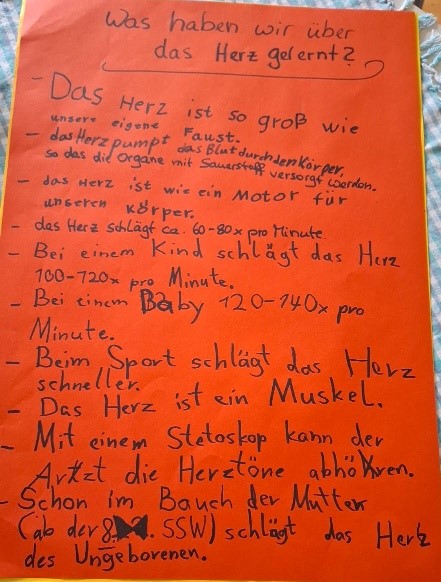 Was haben wir über
das Herz gelernt?
- Das Herz ist so groß wie
unsere eigene Faust.
- das Herz pumpt das Blut durch den Körper,
so das die Organe mit Sauerstoff versorgt werden.
- das Herz ist wie ein Motor für
unseren Körper.
- das Herz schlägt ca. 60-80x pro Minute
- Bei einem Kind schlägt das Herz
100-120x pro Minute.
- Bei einem Baby 120-140x pro
Minute.
- Beim Sport schlägt das Herz
schneller.
- Das Herz ist ein Muskel.
- Mit einem Stetoskop kann der
Artzt die Herztöne abhören.
- Schon im Bauch der Mutter
(ab der 8. SSW) schlägt das Herz
des Ungeborenen.